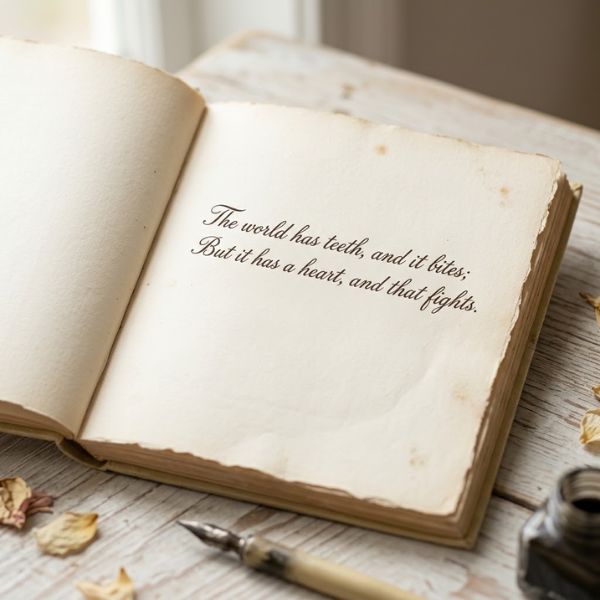 The world has teeth, and it bites;
But it has a heart, and that fights.